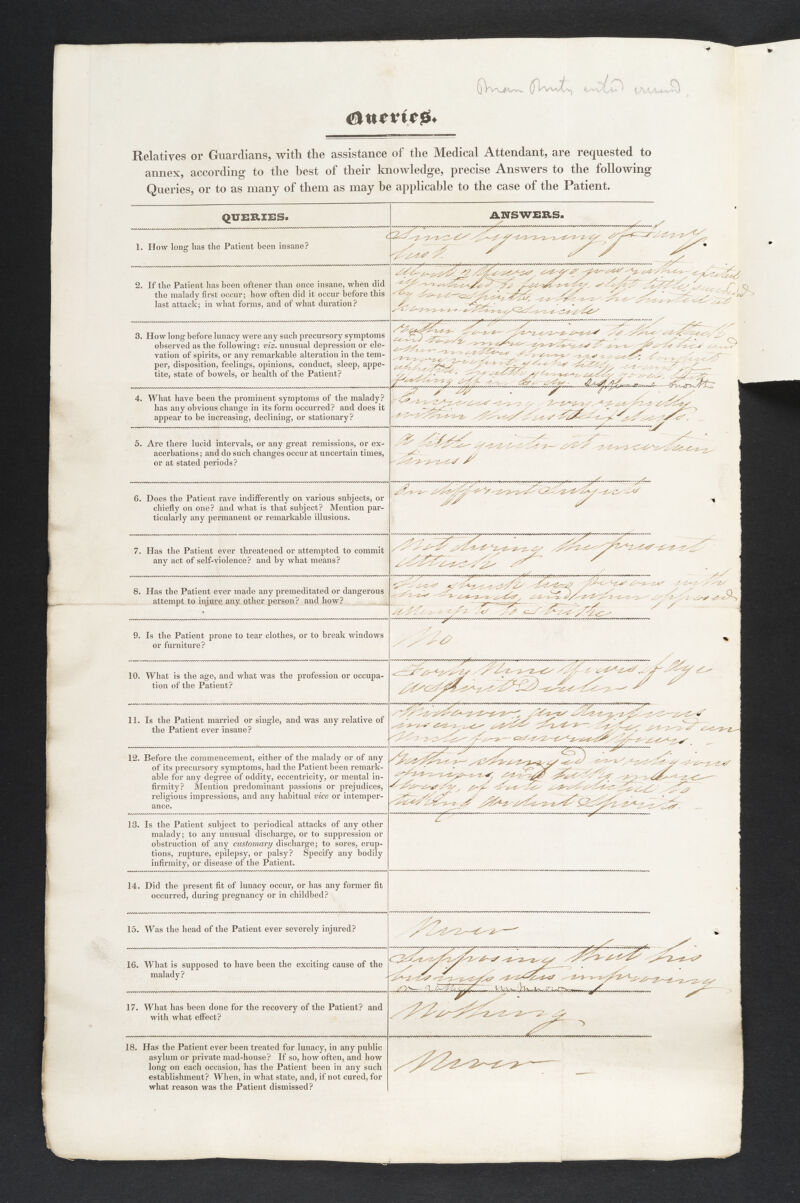 Queries.
Relatives or Guardians, with the assistance of the Medical Attendant, are requested to
annex, according to the best of their knowledge, precise Answers to the following
Queries, or to as many of them as may be applicable to the case of the Patient.
QUERIES.
ANSWERS.
1. How long has the Patient been insane?
Since beginning of
last.
2. If the Patient has been oftener than once insane, when did
the malady first occur; how often did it occur before this
last attack; in what forms, and of what duration?
About 2 Years ago was rather excited
slept little succeeded
by low Spirits when he hinted at
Committing Suicide
3. How long before lunacy were any such precursory symptoms
observed as the following: viz. unusual depression or ele-
vation of spirits, or any remarkable alteration in the tem-
per, disposition, feelings, opinions, conduct, sleep, appe-
tite, state of bowels, or health of the Patient?
Rather low previous to the attack
and took more interest in politics and
other matters than usual.
falling off in body.
4. What have been the prominent symptoms of the malady?
has any obvious change in its form occurred? and does it
appear to be increasing, declining, or stationary?
Increasing very rapidly
within the last
5. Are there lucid intervals, or any great remissions, or ex-
acerbations; and do such changes occur at uncertain times,
or at stated periods?
A little quieter at uncertain
times
6. Does the Patient rave indifferently on various subjects, or
chiefly on one? and what is that subject? Mention par-
ticularly any permanent or remarkable illusions.
On different Subjects
7. Has the Patient ever threatened or attempted to commit
any act of self-violence? and by what means?
Not during the present
Attack
8. Has the Patient ever made any premeditated or dangerous
attempt to injure any other person? and how?
Has struck two persons with
his hands, and when opposed
attempts to strike
9. Is the Patient prone to tear clothes, or to break windows
or furniture?
No
10. What is the age, and what was the profession or occupa-
tion of the Patient?
Forty Nine Years of Age
a Spirit Dealer
11. Is the Patient married or single, and was any relative of
the Patient ever insane?
Widower, an Aunt was
insane all her life, and an
Uncle for several Years.
12. Before the commencement, either of the malady or of any
of its precursory symptoms, had the Patient been remark-
able for any degree of oddity, eccentricity, or mental in-
firmity? Mention predominant passions or prejudices,
religious impressions, and any habitual vice or intemper-
ance.
Rather changed in religious
opinions, and talks more
of late addicted to
taking Ardent Spirits
13. Is the Patient subject to periodical attacks of any other
malady; to any unusual discharge, or to suppression or
obstruction of any customary discharge; to sores, erup-
tions, rupture, epilepsy, or palsy? Specify any bodily
infirmity, or disease of the Patient.
14. Did the present fit of lunacy occur, or has any former fit
occurred, during pregnancy or in childbed?
15. Was the head of the Patient ever severely injured?
Never
16. What is supposed to have been the exciting cause of the
malady?
Supposing that his
business was improving
or unknown
17. What has been done for the recovery of the Patient? and
with what effect?
Nothing
18. Has the Patient ever been treated for lunacy, in any public
asylum or private mad-house? If so, how often, and how
long on each occasion, has the Patient been in any such
establishment? When, in what state, and, if not cured, for
what reason was the Patient dismissed?
Never